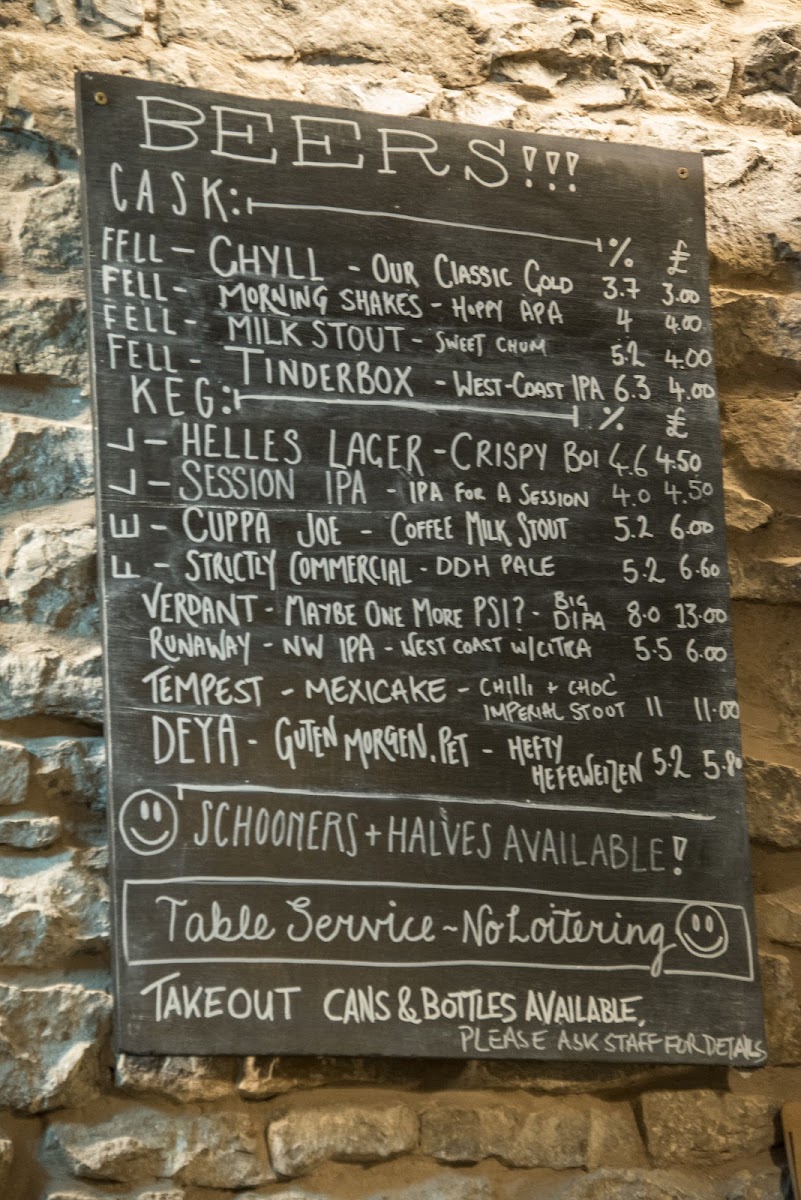 BEERS!!!
CASK: % £
FELL - CHYLL - OUR CLASSIC GOLD 3.7 3.00
FELL - MORNING SHAKES - HOPPY APA 4 4.00
FELL - MILK STOUT - SWEET CHUM 5.2 4.00
FELL - TINDERBOX - WEST-COAST IPA 6.3 4.00
KEG: % £
FELL
- HELLES LAGER - CRISPY BOI 4.6 4.50
- SESSION IPA - IPA FOR A SESSION 4.0 4.50
- CUPPA JOE - COFFEE MILK STOUT 5.2 6.00
- STRICTLY COMMERCIAL - DDH PALE 5.2 6.60
VERDANT - MAYBE ONE MORE PSI? - BIG DIPA 8.0 13.00
RUNAWAY - NW IPA - WEST COAST W/CITRA 5.5 6.00
TEMPEST - MEXICAKE - CHILLI + CHOC'
IMPERIAL STOOT 11 11.00
DEYA - GUTEN MORGEN.PET - HEFTY
HEFEWEIZEN 5.2 5.80
SCHOONERS + HALVES AVAILABLE!
Table Service ~ No Loitering
TAKEOUT CANS & BOTTLES AVAILABLE,
PLEASE ASK STAFF FOR DETAILS